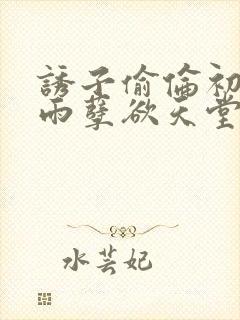 誘子偷倫初
雨孽欲天堂
水芸妃